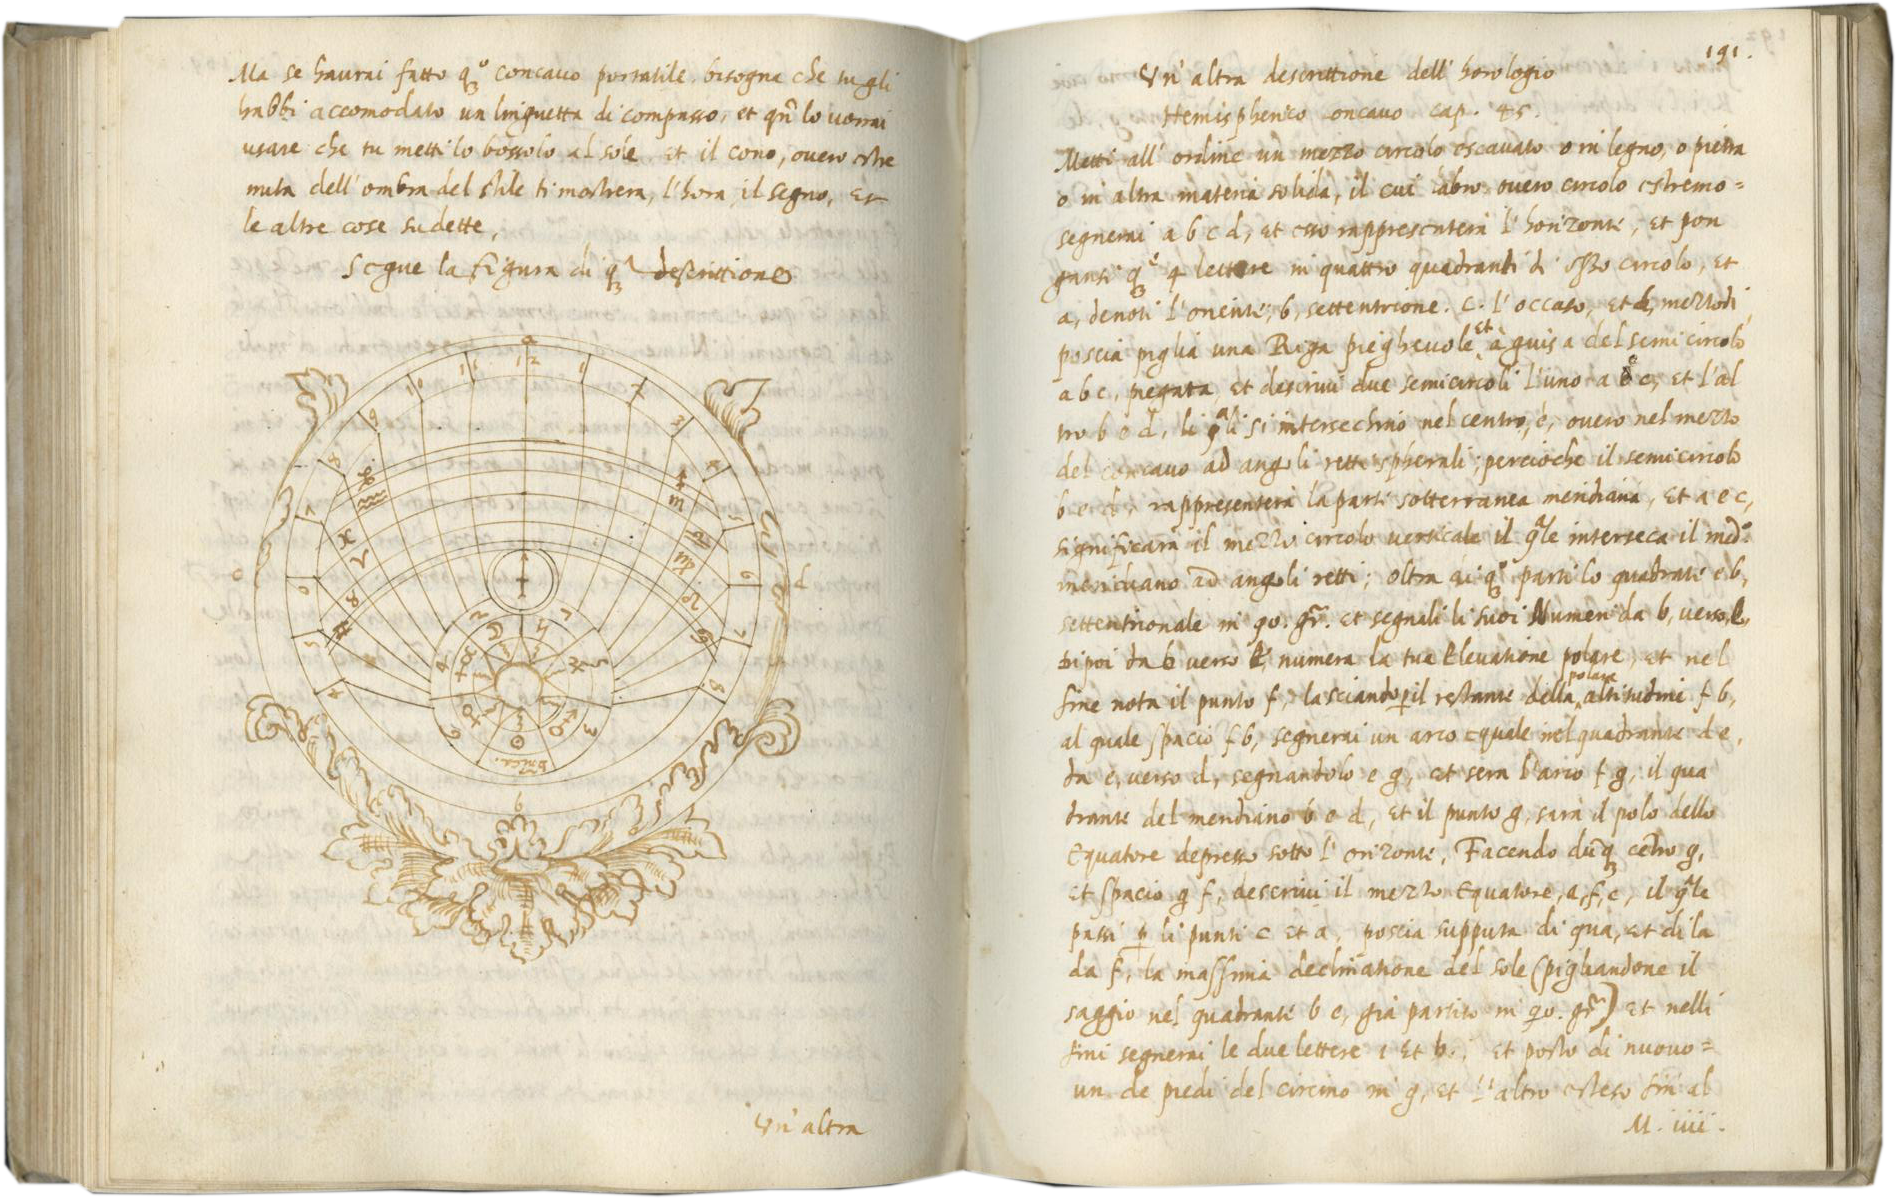 Ma se haurai fatto q3º concauo portatile, bisogna che tu gli
habbi accomodato un linguetta di compasso, et qñ lo uorrai
usare che tu metti lo bossolo al sole, et il cono, ouero estre
mita dell'ombra del stile ti mostrera, l'hora, il segno, et
le altre cose sudette,
Segue la figura di q3ª descrittione
a
10 11 12 1 2
9 3
8 4
7 5
6 6
5 7
4 8
c d
b
Un'altra
191.
Un'altra descrittione dell'horologio
Hemispherico concauo cap. 45.
Metti all'ordine un mezzo circolo escauato o in legno, o pietra
o in altra materia solida, il cui labro ouero circolo estremo=
segnerai a b c d, et esso rappresentera l'horizonte, et pon
gansi q3ᵉ 4 lettere in quattro quadranti di esso circolo, et
a, denoti l'oriente, b, settentrione. c. l'occaso, et d, mezzodi,
poscia piglia una Riga pieghevole, et à guisa del semicircolo
a b c, piegata, et descriui due semicircoli l'uno a e c, et l'al
tro b e d, li qªli si intersechino nel centro, e, ouero nel mezzo
del concauo ad angoli retti spherali; percioche il semicircolo
b e d, rappresenterà la parte sotterranea meridiana, et a e c,
significarà il mezzo circolo uerticale il qªle interseca il medº.
meridiano ad angoli retti; oltra di q3º parti lo quadrante e b,
settentrionale in 90. gr. et segnali li suoi Numeri da b, uerso, e,
di poi da b uerso e, numera la tua Eleuatione polare, et nel
fine nota il punto f, lasciando p il restante della polare altitudine f b,
al quale spacio f b, segnerai un arco equale nel quadrante d e,
da e, uerso d, segnandolo e g, et sera l'arco f g, il qua
drante del meridiano b e d, et il punto g, sarà il polo dello
Equatore depresso sotto l'orizonte, Facendo dũq3 cẽtro g,
et spacio g f, descriui il mezzo Equatore, a, f, c, il qªle
passi p li punti c et a, poscia supputa di qua, et di la
da f, la massima declinatione del sole (pigliandone il
saggio nel quadrante b e, già partito in 90. gr.) et nelli
fini segnerai le due lettere i et h.; et posto di nuouo=
un de piedi del circino in g, et l'altro esteso fin al
M. iiii.